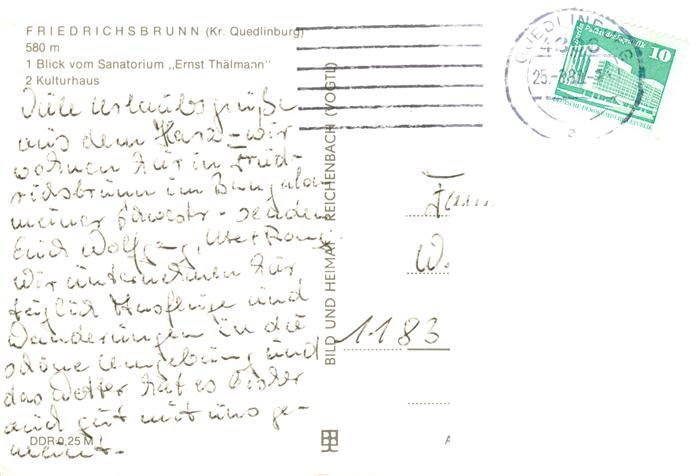 FRIEDRICHSBRUNN (Kr. Quedlinburg)
580 m
1 Blick vom Sanatorium „Ernst Thälmann"
2 Kulturhaus
Viele Urlaubsgrüße
aus dem Harz – wir
wohnen hier in Fried-
richsbrunn im Bungalow
meiner Schwester – senden
Euch Wolfgang, Ute +
wir unternehmen hier
täglich Ausflüge und
Wanderungen in die
schöne Umgebung und
das Wetter hat es bisher
auch gut mit uns ge-
meint.
DDR 0,25 M
BILD UND HEIMAT REICHENBACH (VOGTL)
Fam
W.
1183
A
QUEDLINBURG
4300
25.-8.81
10
DEUTSCHE DEMOKRATISCHE REPUBLIK